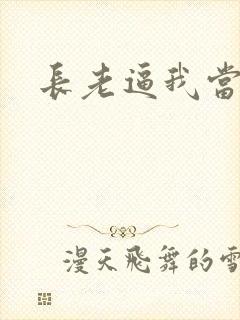 長老逼我當
漫天飛舞的雪